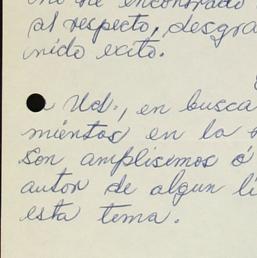 no he encontrado
al respecto, desgra
nido exito.
a Ud., en busca
mientos en la
son amplisimos ó
autor de algun li
esta tema.